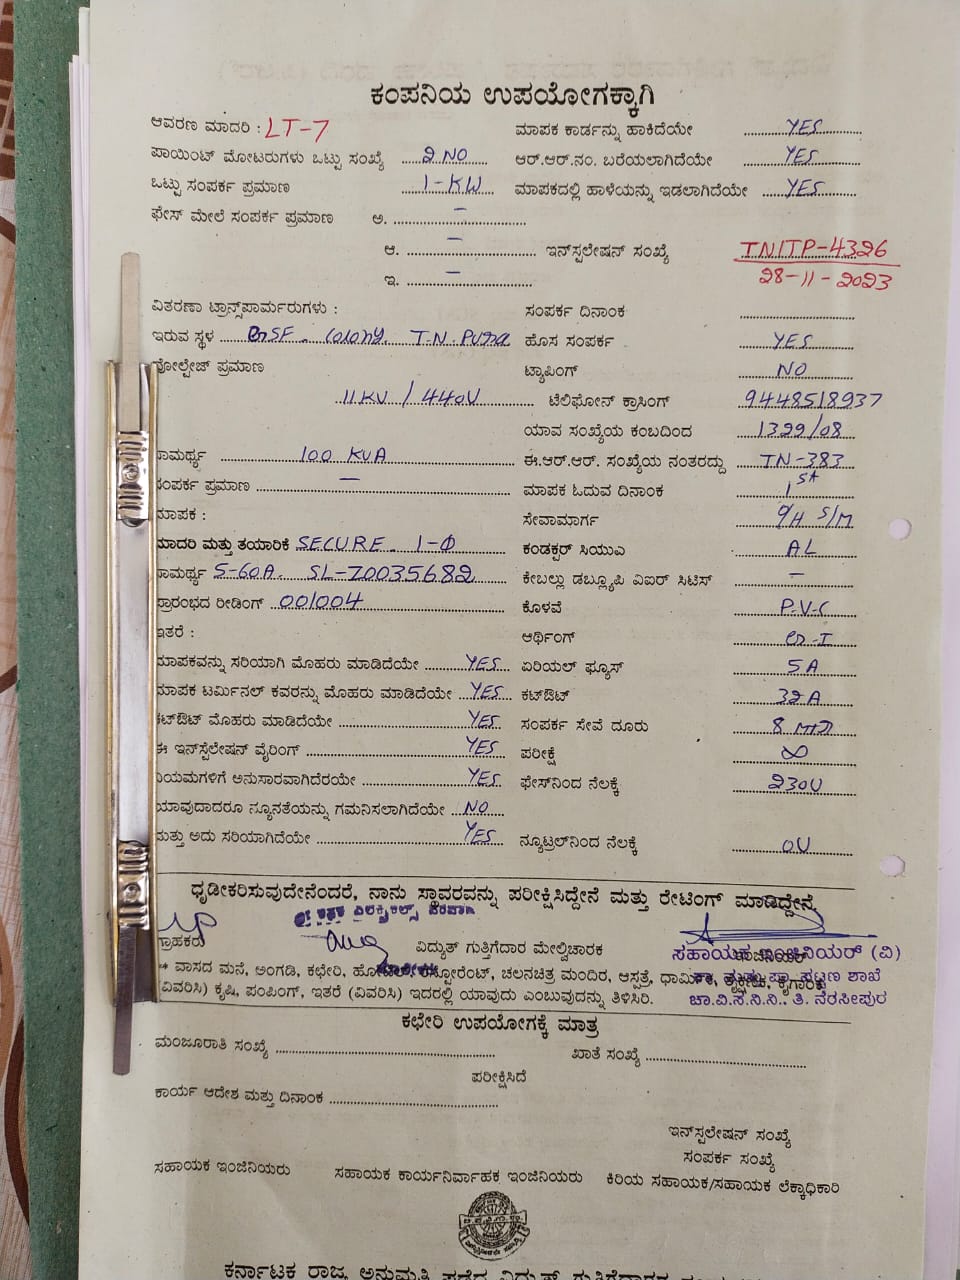 ಕಂಪನಿಯ ಉಪಯೋಗಕ್ಕಾಗಿ
ಆವರಣ ಮಾದರಿ : LT-7 ಮಾಪಕ ಕಾರ್ಡನ್ನು ಹಾಕಿದೆಯೇ YES
ಪಾಯಿಂಟ್ ಮೋಟರುಗಳು ಒಟ್ಟು ಸಂಖ್ಯೆ 2 NO ಆರ್.ಆರ್.ನಂ. ಬರೆಯಲಾಗಿದೆಯೇ YES
ಒಟ್ಟು ಸಂಪರ್ಕ ಪ್ರಮಾಣ 1-KW ಮಾಪಕದಲ್ಲಿ ಹಾಳೆಯನ್ನು ಇಡಲಾಗಿದೆಯೇ YES
ಫೇಸ್ ಮೇಲೆ ಸಂಪರ್ಕ ಪ್ರಮಾಣ ಅ. –
ಆ. – ಇನ್‌ಸ್ಟಲೇಷನ್ ಸಂಖ್ಯೆ TNITP-4326
ಇ. – 28-11-2023
ವಿತರಣಾ ಟ್ರಾನ್ಸ್‌ಪಾರ್ಮರುಗಳು : ಸಂಪರ್ಕ ದಿನಾಂಕ
ಇರುವ ಸ್ಥಳ Colony T.N ಹೊಸ ಸಂಪರ್ಕ YES
ವೋಲ್ಟೇಜ್ ಪ್ರಮಾಣ ಟ್ಯಾಪಿಂಗ್ NO
11KV / 440V ಟೆಲಿಫೋನ್ ಕ್ರಾಸಿಂಗ್ 9448518937
ಯಾವ ಸಂಖ್ಯೆಯ ಕಂಬದಿಂದ 1329/08
ಸಾಮರ್ಥ್ಯ 100 KVA ಈ.ಆರ್.ಆರ್. ಸಂಖ್ಯೆಯ ನಂತರದ್ದು TN-383
ಸಂಪರ್ಕ ಪ್ರಮಾಣ – ಮಾಪಕ ಓದುವ ದಿನಾಂಕ 1st
ಮಾಪಕ : ಸೇವಾಮಾರ್ಗ O/H S/M
ಮಾದರಿ ಮತ್ತು ತಯಾರಿಕೆ SECURE. 1-Φ ಕಂಡಕ್ಟರ್ ಸಿಯುಎ AL
ಸಾಮರ್ಥ್ಯ 5-60A. SL-70035682 ಕೇಬಲ್ಲು ಡಬ್ಲ್ಯೂಪಿ ವಿಐಆರ್ ಸಿಟಿಸ್ –
ಪ್ರಾರಂಭದ ರೀಡಿಂಗ್ 001004 ಕೊಳವೆ P.V.C
ಇತರೆ : ಆರ್ಥಿಂಗ್
ಮಾಪಕವನ್ನು ಸರಿಯಾಗಿ ಮೊಹರು ಮಾಡಿದೆಯೇ YES ಏರಿಯಲ್ ಫ್ಯೂಸ್ 5A
ಮಾಪಕ ಟರ್ಮಿನಲ್ ಕವರನ್ನು ಮೊಹರು ಮಾಡಿದೆಯೇ YES ಕಟ್‌ಔಟ್ 32A
ಕಟ್‌ಔಟ್ ಮೊಹರು ಮಾಡಿದೆಯೇ YES ಸಂಪರ್ಕ ಸೇವೆ ದೂರು 8
ಈ ಇನ್‌ಸ್ಟೆಲೇಷನ್ ವೈರಿಂಗ್ YES ಪರೀಕ್ಷೆ ∞
ನಿಯಮಗಳಿಗೆ ಅನುಸಾರವಾಗಿದೆರಯೇ YES ಫೇಸ್‌ನಿಂದ ನೆಲಕ್ಕೆ 230V
ಯಾವುದಾದರೂ ನ್ಯೂನತೆಯನ್ನು ಗಮನಿಸಲಾಗಿದೆಯೇ NO
ಮತ್ತು ಅದು ಸರಿಯಾಗಿದೆಯೇ YES ನ್ಯೂಟ್ರಲ್‌ನಿಂದ ನೆಲಕ್ಕೆ 0V
ಧೃಡೀಕರಿಸುವುದೇನೆಂದರೆ, ನಾನು ಸ್ಥಾವರವನ್ನು ಪರೀಕ್ಷಿಸಿದ್ದೇನೆ ಮತ್ತು ರೇಟಿಂಗ್ ಮಾಡಿದ್ದೇನೆ
ಗ್ರಾಹಕರು ವಿದ್ಯುತ್ ಗುತ್ತಿಗೆದಾರ ಮೇಲ್ವಿಚಾರಕ ಸಹಾಯಕ ಇಂಜಿನಿಯರ್ (ವಿ)
** ವಾಸದ ಮನೆ, ಅಂಗಡಿ, ಕಛೇರಿ, ಹೋಟೆಲ್, ರೆಸ್ಟೋರೆಂಟ್, ಚಲನಚಿತ್ರ ಮಂದಿರ, ಆಸ್ಪತ್ರೆ, ಧಾರ್ಮಿಕ ಶಾಖೆ
(ವಿವರಿಸಿ) ಕೃಷಿ, ಪಂಪಿಂಗ್, ಇತರೆ (ವಿವರಿಸಿ) ಇದರಲ್ಲಿ ಯಾವುದು ಎಂಬುವುದನ್ನು ತಿಳಿಸಿರಿ. ಚಾ.ವಿ.ಸ.ನಿ.ನಿ., ತಿ. ನರಸೀಪುರ
ಕಛೇರಿ ಉಪಯೋಗಕ್ಕೆ ಮಾತ್ರ
ಮಂಜೂರಾತಿ ಸಂಖ್ಯೆ ಖಾತೆ ಸಂಖ್ಯೆ
ಪರೀಕ್ಷಿಸಿದೆ
ಕಾರ್ಯ ಆದೇಶ ಮತ್ತು ದಿನಾಂಕ
ಇನ್‌ಸ್ಟಲೇಷನ್ ಸಂಖ್ಯೆ
ಸಂಪರ್ಕ ಸಂಖ್ಯೆ
ಸಹಾಯಕ ಇಂಜಿನಿಯರು ಸಹಾಯಕ ಕಾರ್ಯನಿರ್ವಾಹಕ ಇಂಜಿನಿಯರು ಕಿರಿಯ ಸಹಾಯಕ/ಸಹಾಯಕ ಲೆಕ್ಕಾಧಿಕಾರಿ
ಕರ್ನಾಟಕ ರಾಜ್ಯ ಅನುಮತಿ ಪಡೆದ ವಿದ್ಯುತ್ ಗುತ್ತಿಗೆದಾರರ